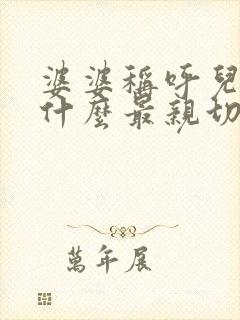 婆婆稱呼兒
什麼最親切
萬年展